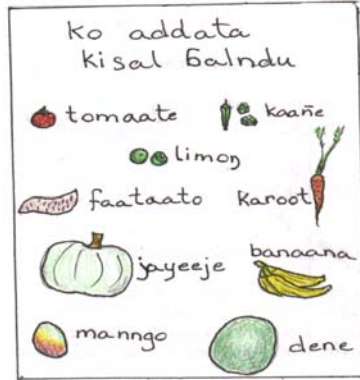 ko addata
kisal ɓalndu
tomaate
kaañe
limoŋ
faataato
karoot
jayeeje
banaana
manngo
dene